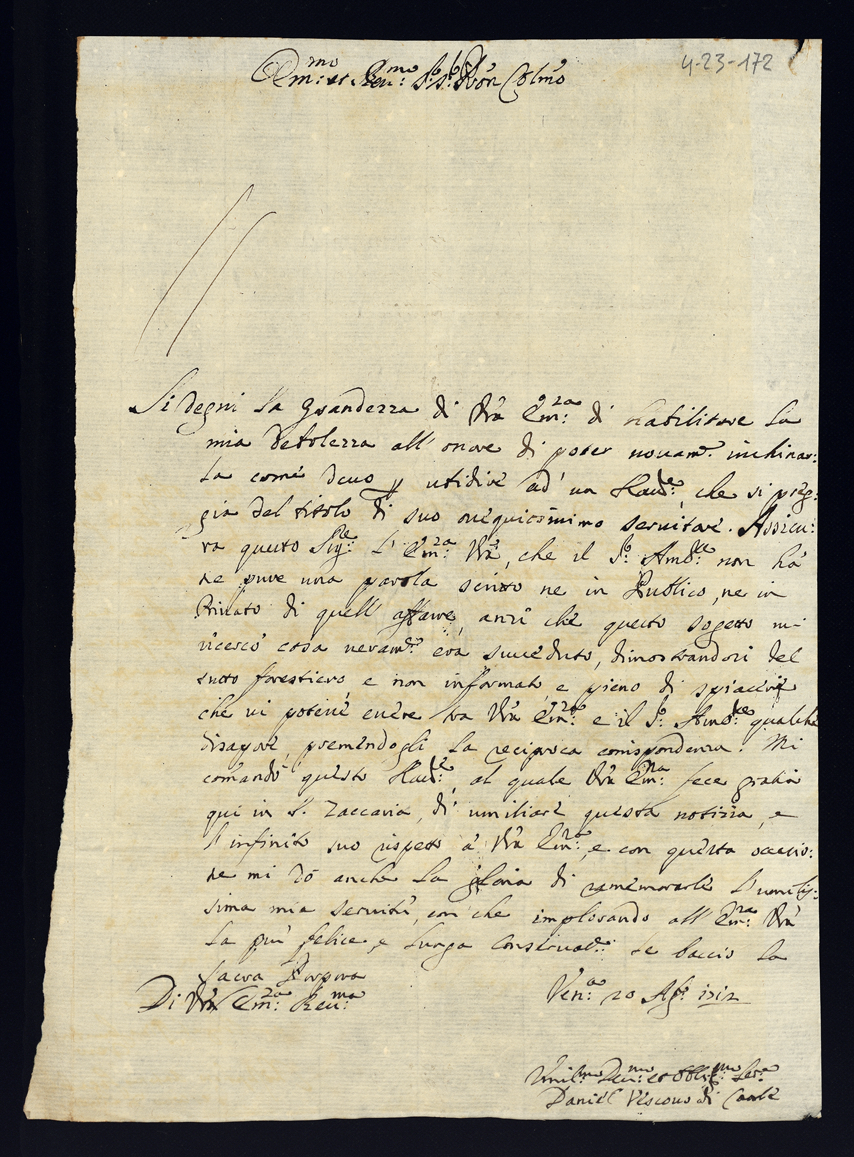 4-23-172
Em:mo et Reu:mo Sr. Sr. Pron Colmo
Si degni la grandezza di Vrã Em:za di riabilitare la
mia debolezza all' onore di poter nouam.e inchinar:
la come deuo, ad un che si preg:
gia del titolo di suo ossequiosissimo seruitore. Assicu:
ra questo Sig:re l' Em:za Vrã, che il Sr. Amb:re non hà
ne pure una parola scritto ne in Publico, ne in
Priuato di quell' affare, anzi che questo sogetto mi
ricercò cosa veram.e era succeduto, dimostrandosi del
tutto forestiero e non informato e pieno di spiacere
che vi potesse essere tra Vrã Em:za e il Sr. Amb:re qualche
disapore, premendogli la reciproca corrispondenza. Mi
comandò questo al quale Vrã Em:za fece gratia
qui in S. Zaccaria, di umiliare questa notizia, e
l' infinito suo rispetto à Vrã Em:za, e con questa occasio:
ne mi dò anche la gloria di ramemorarle l' umilis:
sima mia seruitù, con che implorando all' Em:za Vrã
la più felice, e lunga conseruat.e le baccio la
sacra Porpora
Di Vrã Em:za Reu:ma
Ven:a 20 Ag.o 1712
Umil:mo Deu:mo et Obblig:mo Ser.e
Daniel Vescouo di Caorle